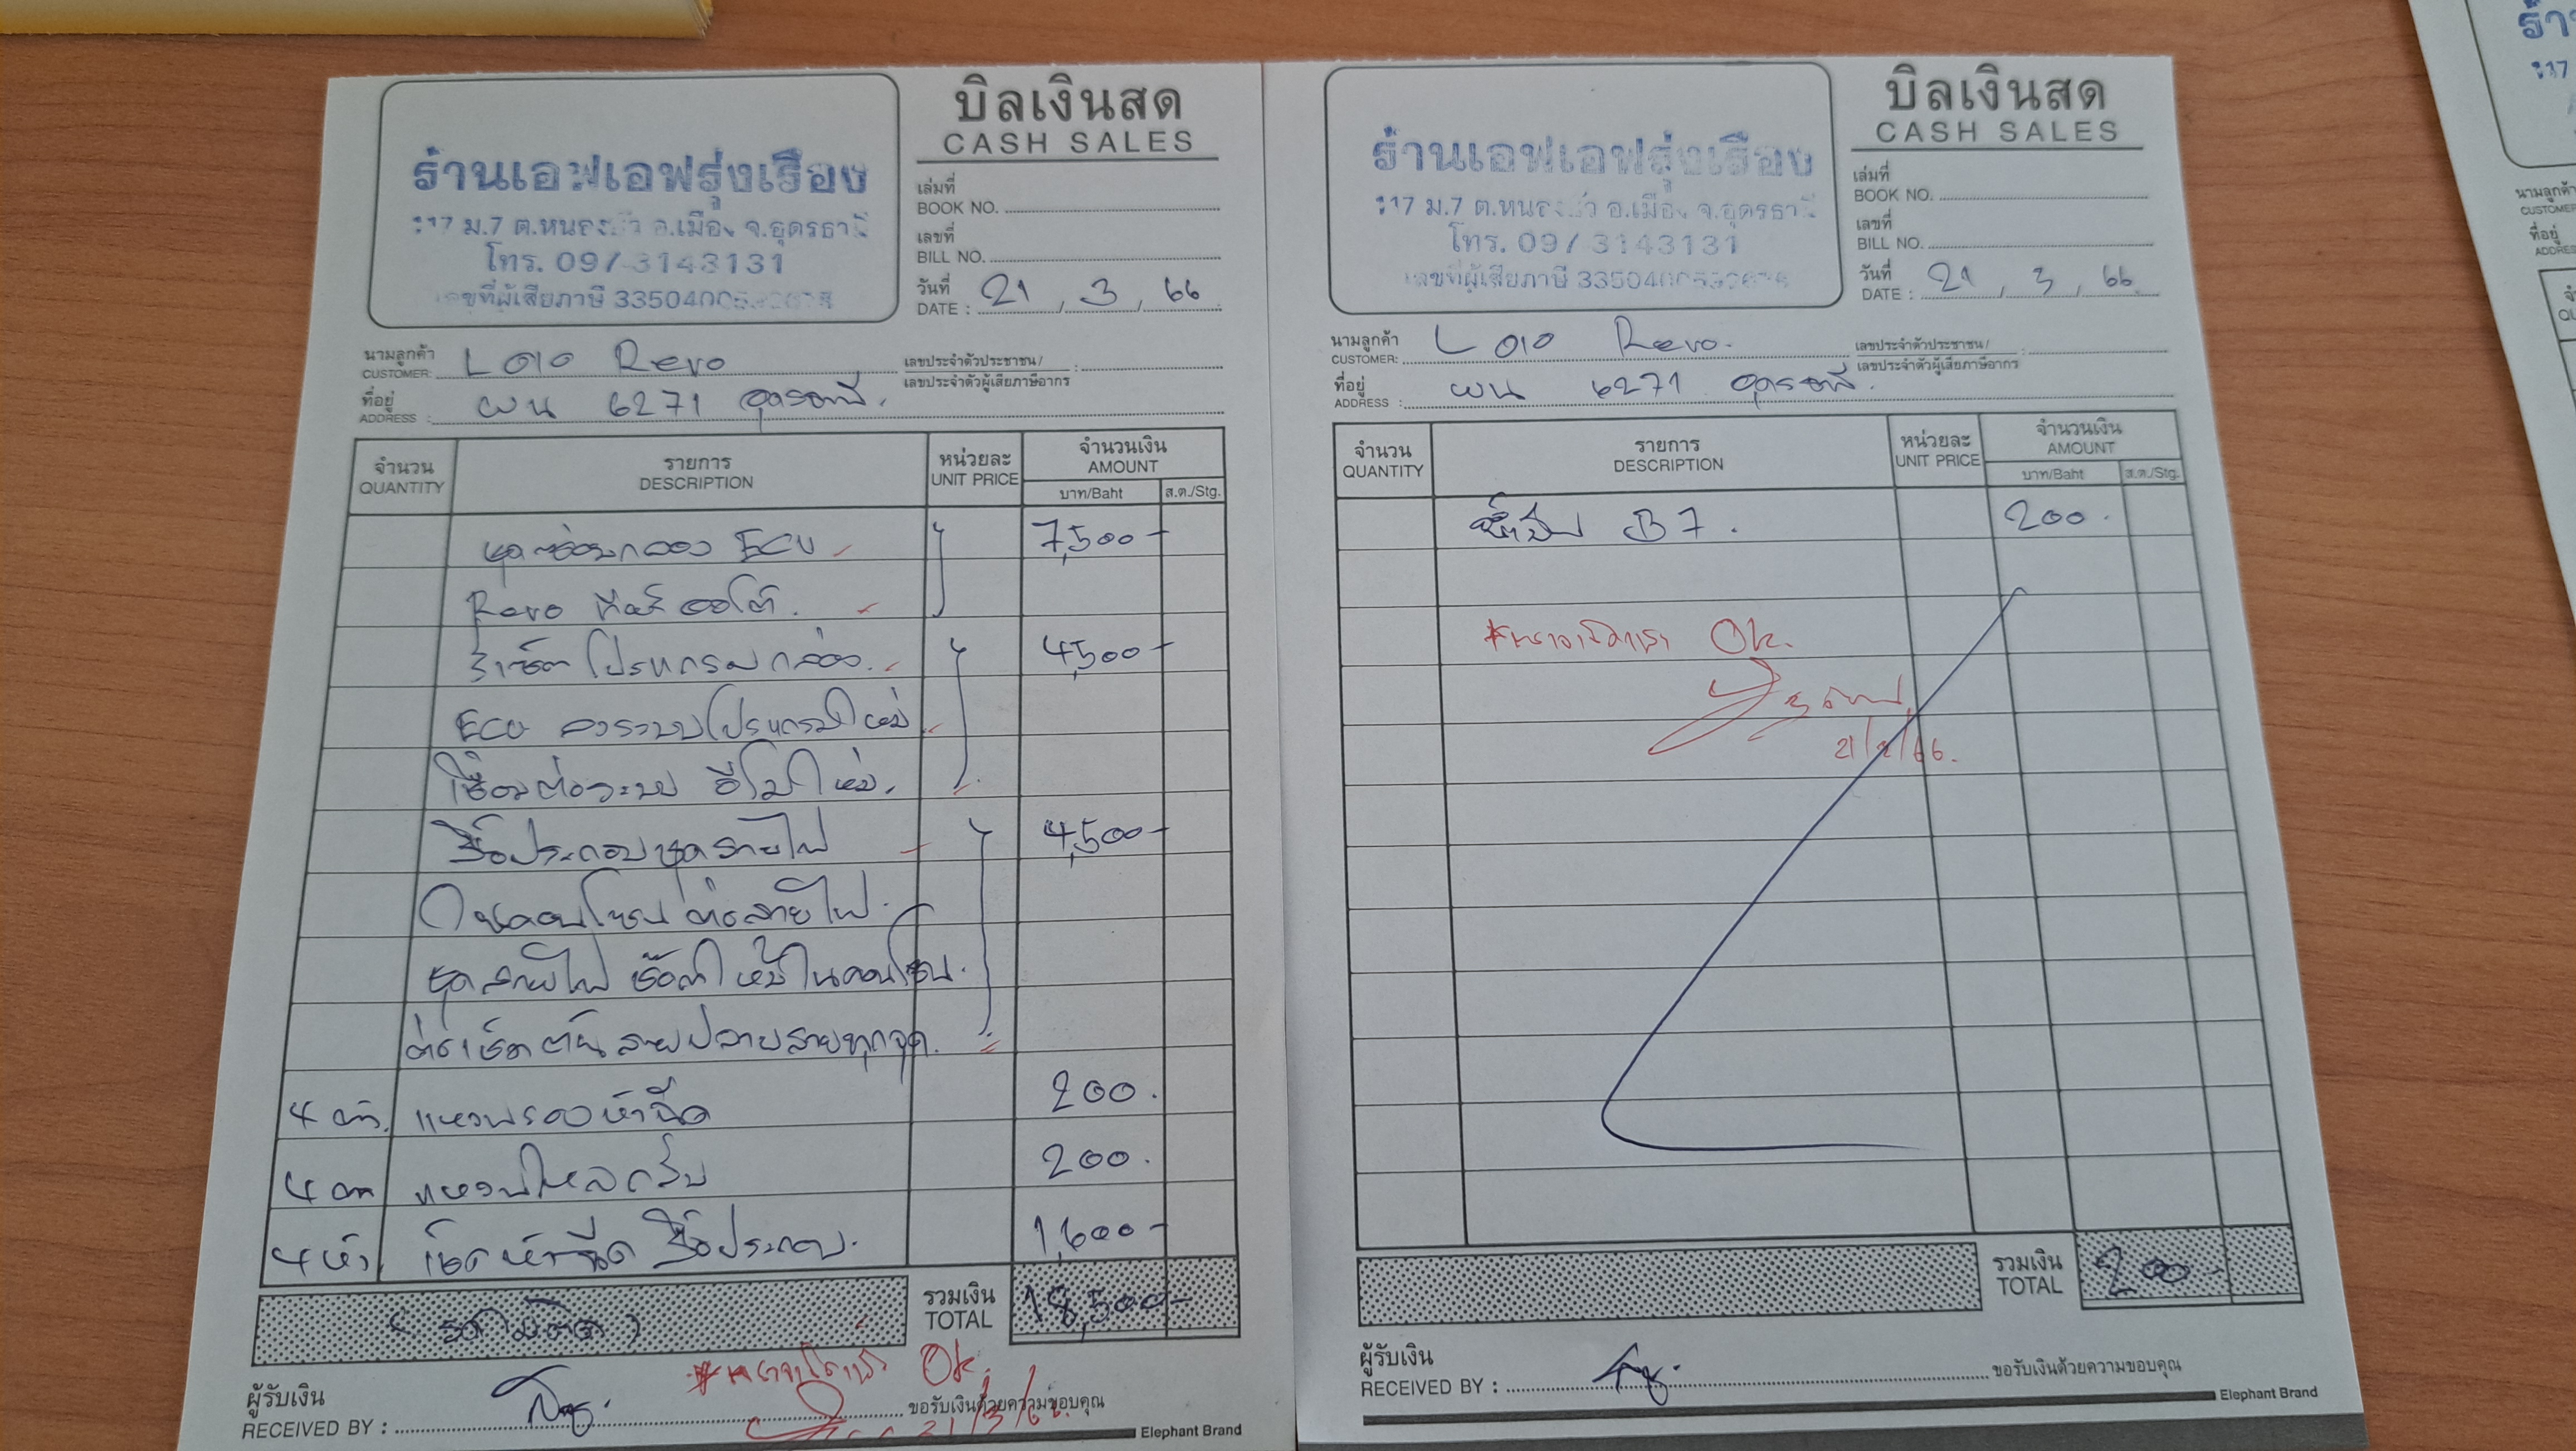 บิลเงินสด
CASH SALES
ร้านเอฟเอฟรุ่งเรือง
117 ม.7 ต.หนองบัว อ.เมือง จ.อุดรธานี
โทร. 097 3143131
เลขที่ผู้เสียภาษี 3350400
เล่มที่
BOOK NO.
เลขที่
BILL NO.
วันที่
DATE : 21 / 3 / 66
นามลูกค้า
CUSTOMER: L010 Revo
เลขประจำตัวประชาชน /
เลขประจำตัวผู้เสียภาษีอากร :
ที่อยู่
ADDRESS : ผน 6271 อุดรธานี.
จำนวน
QUANTITY
รายการ
DESCRIPTION
หน่วยละ
UNIT PRICE
จำนวนเงิน
AMOUNT
บาท/Baht ส.ต./Stg.
ชุดซ่อมกล่อง ECU 7,500-
Revo เกียร์ ออโต้.
รีเซ็ตโปรแกรมกล่อง. 4,500-
ECU ลงระบบโปรแกรมใหม่
เชื่อมต่อระบบ อีโมใหม่.
รื้อประกอบชุดสายไฟ 4,500-
ในคอนโซน ต่อสายไฟ.
ชุดสายไฟ ใหม่ในคอนโซน.
ต่อเช็คต้นสายปลายสายทุกจุด.
4 ตัว แหวนรองหัวฉีด 200.
4 ตัว แหวนไหลกลับ 200.
4 หัว เช็คหัวฉีด รื้อประกอบ. 1,600-
(รถไม่ติด)
รวมเงิน
TOTAL 18,500-
*ตรวจเช็คแล้ว Ok.
21/3/66.
ผู้รับเงิน
RECEIVED BY :
ขอรับเงินด้วยความขอบคุณ
Elephant Brand
บิลเงินสด
CASH SALES
ร้านเอฟเอฟรุ่งเรือง
117 ม.7 ต.หนองบัว อ.เมือง จ.อุดรธานี
โทร. 097 3143131
เลขที่ผู้เสียภาษี 3350400
เล่มที่
BOOK NO.
เลขที่
BILL NO.
วันที่
DATE : 21 / 3 / 66
นามลูกค้า
CUSTOMER: L010 Revo.
เลขประจำตัวประชาชน /
เลขประจำตัวผู้เสียภาษีอากร :
ที่อยู่
ADDRESS : ผน 6271 อุดรธานี.
จำนวน
QUANTITY
รายการ
DESCRIPTION
หน่วยละ
UNIT PRICE
จำนวนเงิน
AMOUNT
บาท/Baht ส.ต./Stg.
น้ำมัน B7. 200.
*ตรวจเช็คแล้ว Ok.
21/3/66.
รวมเงิน
TOTAL 200-
ผู้รับเงิน
RECEIVED BY :
ขอรับเงินด้วยความขอบคุณ
Elephant Brand
นามลูกค้า
CUSTOMER
ที่อยู่